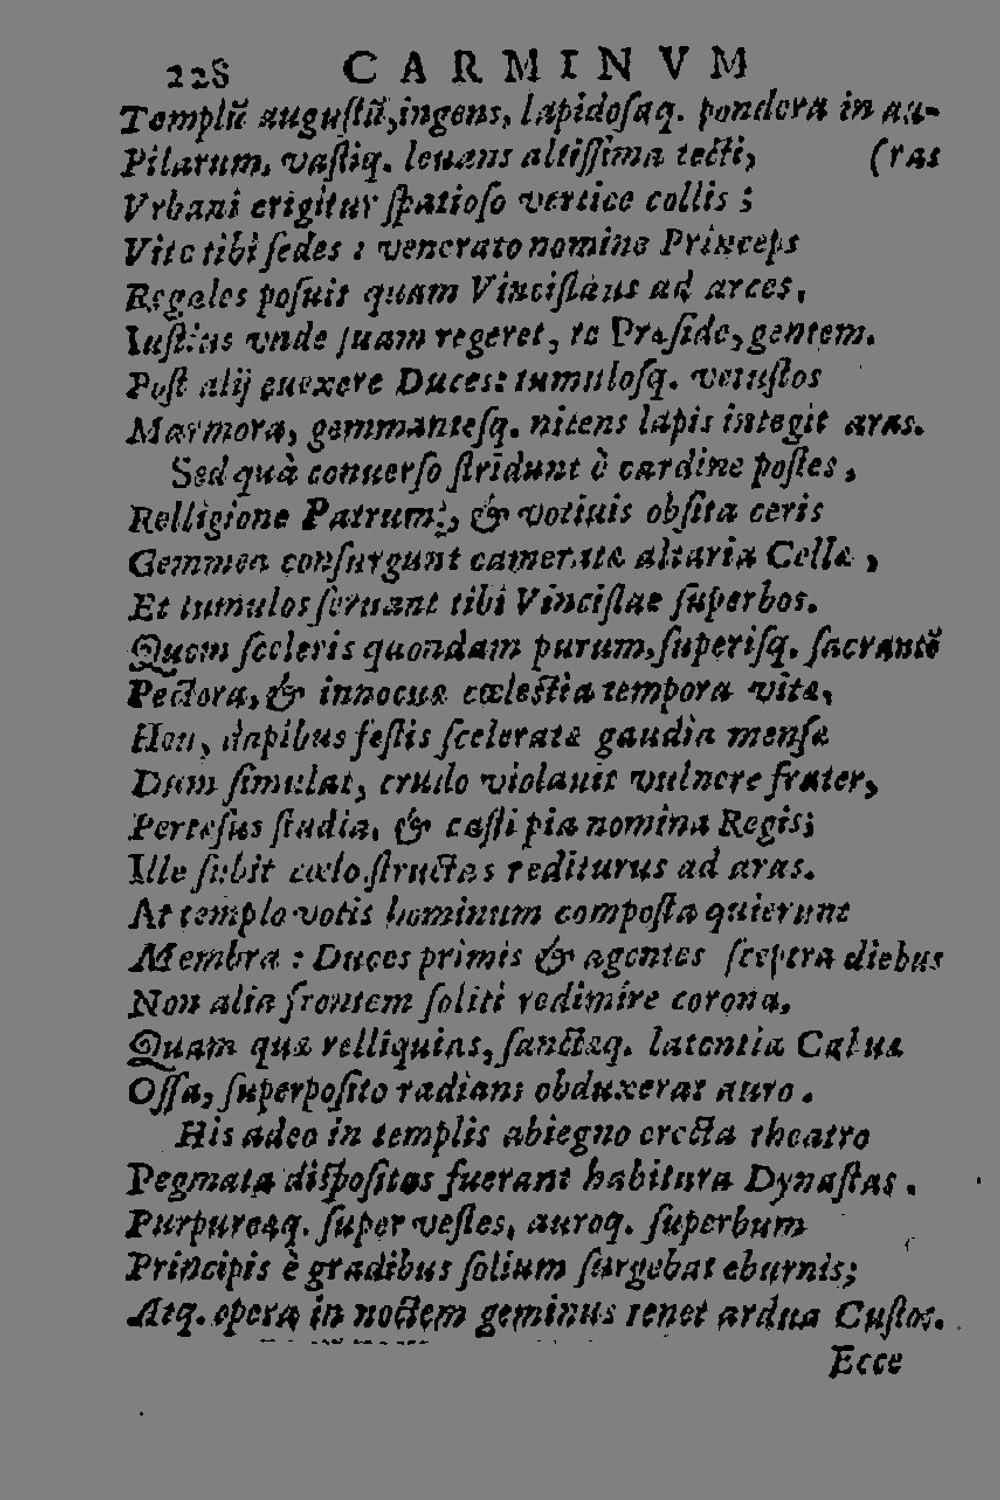 228 CARMINVM
Templū augustū, ingens, lapidosaq. pondera in au-
Pilarum, vastiq. leuans altissima tecti, (ras
Vrbani erigitur spatioso vertice collis ;
Vite tibi sedes : venerato nomine Princeps
Regales posuit quam Vincislàus ad arces,
Iustius vnde suam regeret, te Præside, gentem.
Post alij euexere Duces: tumulosq. vetustos
Marmora, gemmantesq. nitens lapis integit aras.
Sed quà conuerso stridunt è cardine postes ,
Relligione Patrum:, & votiuis obsita ceris
Gemmea consurgunt cameratæ altaria Cellæ ,
Et tumulos seruant tibi Vincislae superbos.
Quem sceleris quondam purum, superisq. sacrantē
Pectora, & innocuæ cœlestia tempora vitæ,
Heu, dapibus festis sceleratæ gaudia mensæ
Dum simulat, crudo violauit vulnere frater,
Pertesus studia, & casti pia nomina Regis;
Ille subit cœlo structas rediturus ad aras.
At templo votis hominum composta quierunt
Membra : Duces primis & agentes sceptra diebus
Non alia frontem soliti redimire corona,
Quam quæ relliquias, sanctæq. latentia Caluæ
Ossa, superposito radians obduxerat auro .
His adeo in templis abiegno erecta theatro
Pegmata dispositos fuerant habitura Dynastas .
Purpureaq. super vestes, auroq. superbum
Principis è gradibus solium surgebat eburnis;
Atq. opera in noctem geminus tenet ardua Custos.
Ecce